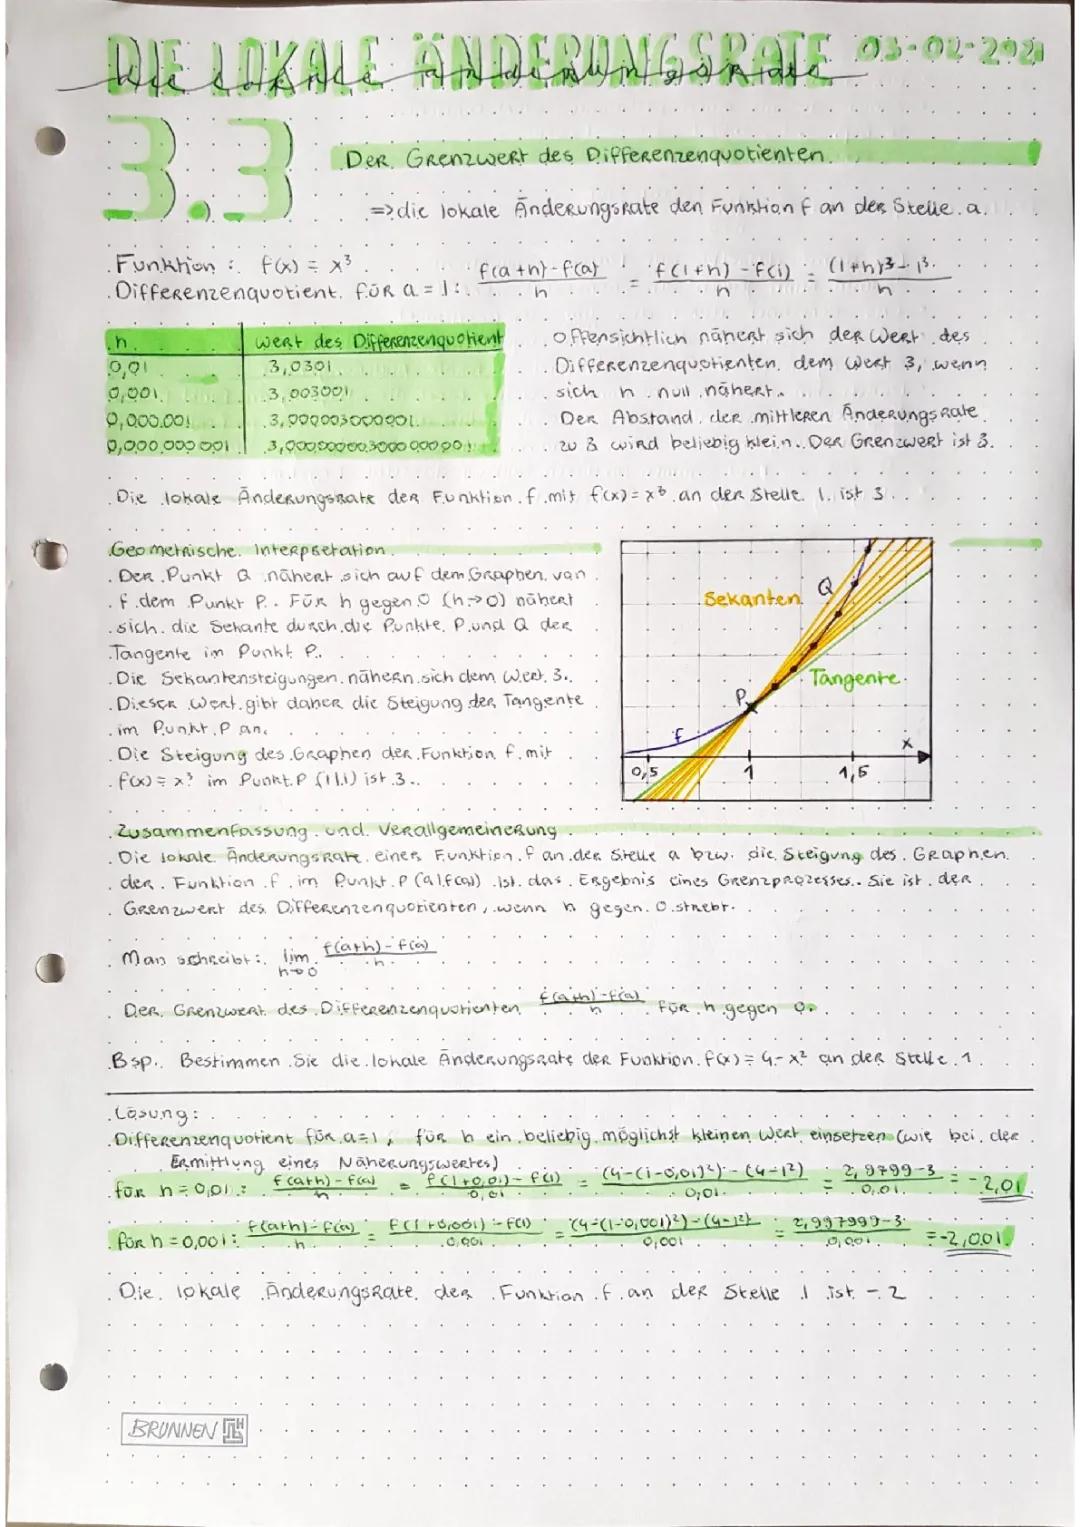 DIE LOKALE ÄNDERUNGSRATE 03-02-2021
die lokale Änderungsrate
3.3
Der Grenzwert des Differenzenquotienten
=> die lokale Änderungsrate den Funktion f an der Stelle a.
Funktion: f(x) = x³
Differenzenquotient für a = 1: f(a+h)-f(a)/h = f(1+h)-f(1)/h = (1+h)³-1³/h
h Wert des Differenzenquotient
0,01 3,0301
0,001 3,003001
0,000.001 3,000003000001
0,000.000.001 3,000000003000000001
Offensichtlich nähert sich der Wert des
Differenzenquotienten dem Wert 3, wenn
sich h null nähert.
Der Abstand der mittleren Änderungsrate
zu 3 wird beliebig klein. Der Grenzwert ist 3.
Die lokale Änderungsrate der Funktion f mit f(x)=x³ an der Stelle 1 ist 3.
Geometrische Interpretation
Der Punkt Q nähert sich auf dem Graphen von
f dem Punkt P. Für h gegen 0 (h->0) nähert
sich die Sekante durch die Punkte P und Q der
Tangente im Punkt P.
Die Sekantensteigungen nähern sich dem Wert 3.
Dieser Wert gibt daher die Steigung der Tangente
im Punkt P an.
Die Steigung des Graphen der Funktion f mit
f(x) = x³ im Punkt P (1|1) ist 3.
Sekanten Q
Tangente
P
f
x
0,5 1 1,5
Zusammenfassung und Verallgemeinerung
Die lokale Änderungsrate einer Funktion f an der Stelle a bzw. die Steigung des Graphen
der Funktion f im Punkt P (a|f(a)) ist das Ergebnis eines Grenzprozesses. Sie ist der
Grenzwert des Differenzenquotienten, wenn h gegen 0 strebt.
Man schreibt: lim h->0 f(a+h)-f(a)/h
Der Grenzwert des Differenzenquotienten f(a+h)-f(a)/h für h gegen 0.
Bsp. Bestimmen Sie die lokale Änderungsrate der Funktion f(x) = 4-x² an der Stelle 1.
Lösung:
Differenzenquotient für a=1, für h ein beliebig möglichst kleinen Wert einsetzen (wie bei der
Ermittlung eines Näherungswertes)
für h = 0,01: f(a+h)-f(a)/h = f(1+0,01)-f(1)/0,01 = (4-(1-0,01)²)-(4-1²)/0,01 = 2,9799-3/0,01 = -2,01
für h = 0,001: f(a+h)-f(a)/h = f(1+0,001)-f(1)/0,001 = (4-(1-0,001)²)-(4-1²)/0,001 = 2,997999-3/0,001 = -2,001
Die lokale Änderungsrate der Funktion f an der Stelle 1 ist -2
BRUNNEN